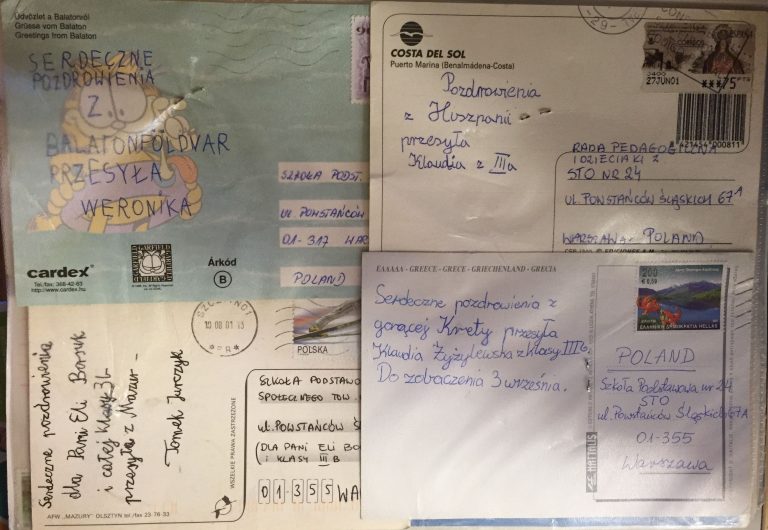 Üdvözlet a Balatonról
Grüsse vom Balaton
Greetings from Balaton
SERDECZNE
POZDROWIENIA
Z
BALATONFÖLDVAR
PRZESYŁA
WERONIKA
SZKOŁA PODST.
UL POWSTAŃCÓW
01-317 WAR
POLAND
cardex
Tel./fax: 368-42-83
http://www.cardex.hu
GARFIELD
Árkód
B
COSTA DEL SOL
Puerto Marina (Benalmádena-Costa)
Pozdrowienia
z Hiszpanii
przesyła
Klaudia z IIIa
ESPAÑA
CORREOS
3400
27JUN01
***75 PTS
8421454000811
RADA PEDAGOGICZNA
I DZIECIAKI Z
STO NR 24
UL. POWSTAŃCÓW ŚLĄSKICH 67A
WARSZAWA, POLAND
Serdeczne pozdrowienia
dla Pani Eli Borsuk
i całej klasy 3b
przesyła z Mazur-
- Tomek Jurczyk
10 08 01
POLSKA
SZKOŁA PODSTAWO
SPOŁECZNEGO TOW.
ul. POWSTAŃCÓW Ś
(DLA PANI ELI BO
i KLASY III B
01355 WA
WSZELKIE PRAWA ZASTRZEŻONE
AFW "MAZURY" OLSZTYN tel./fax 23-76-33
ΕΛΛΑΔΑ - GREECE - GRECE - GRIECHENLAND - GRECIA
Serdeczne pozdrowienia z
gorącej Krety przesyła
Klaudia Żyżylewska z klasy III b.
Do zobaczenia 3 września.
200
€ 0,59
ΕΛΛΗΝΙΚΗ ΔΗΜΟΚΡΑΤΙΑ HELLAS
POLAND
Szkoła Podstawowa nr 24
STO
ul. Powstańców Śląskich 67A
01-355
Warszawa